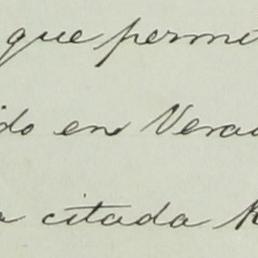 que permi
do en Vera
citada